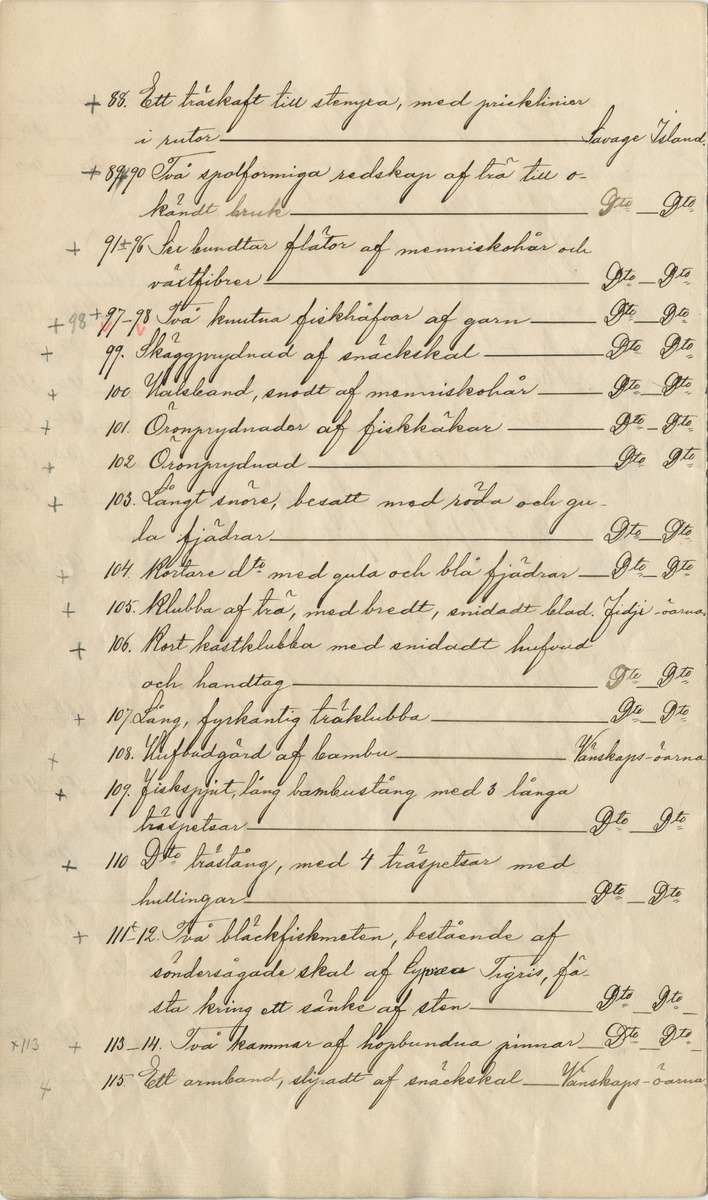 + 88. Ett träskaft till stenyxa, med pricklinier
i rutor — Savage Island.
+ 89+90 Två spolformiga redskap af trä till o-
kändt bruk — Dto — Dto
+ 91±96 Sex bundtar flätor af menniskohår och
växtfibrer — Dto — Dto
+ 98 + 97-98 Två knutna fiskhåfvar af garn — Dto — Dto
+ 99. Skäggprydnad af snäckskal — Dto Dto
+ 100 Halsband, snodt af menniskohår — Dto — Dto
+ 101 Öronprydnader af fiskkäkar — Dto — Dto
+ 102 Öronprydnad — Dto Dto
+ 103. Långt snöre, besatt med röda och gu-
la fjädrar — Dto — Dto
+ 104. Kortare dto med gula och blå fjädrar — Dto — Dto
+ 105. Klubba af trä, med bredt, snidadt blad. Fidji-öarna
+ 106. Kort kastklubba med snidadt hufvud
och handtag — Dto — Dto
+ 107 Lång, fyrkantig träklubba — Dto — Dto
+ 108. Hufvudgärd af bambu — Vänskaps-öarna
+ 109. Fiskspjut, lång bambustång med 3 långa
träspetsar — Dto — Dto
+ 110 Dto trästång, med 4 träspetsar med
hullingar — Dto — Dto
+ 111±-12. Två bläckfiskmeten, bestående af
söndersågade skal af Cypræa Tigris, fä-
sta kring ett sänke af sten — Dto — Dto —
×113 + 113-14. Två kammar af hopbundna pinnar — Dto — Dto —
+ 115 Ett armband, slipadt af snäckskal — Vänskaps-öarna